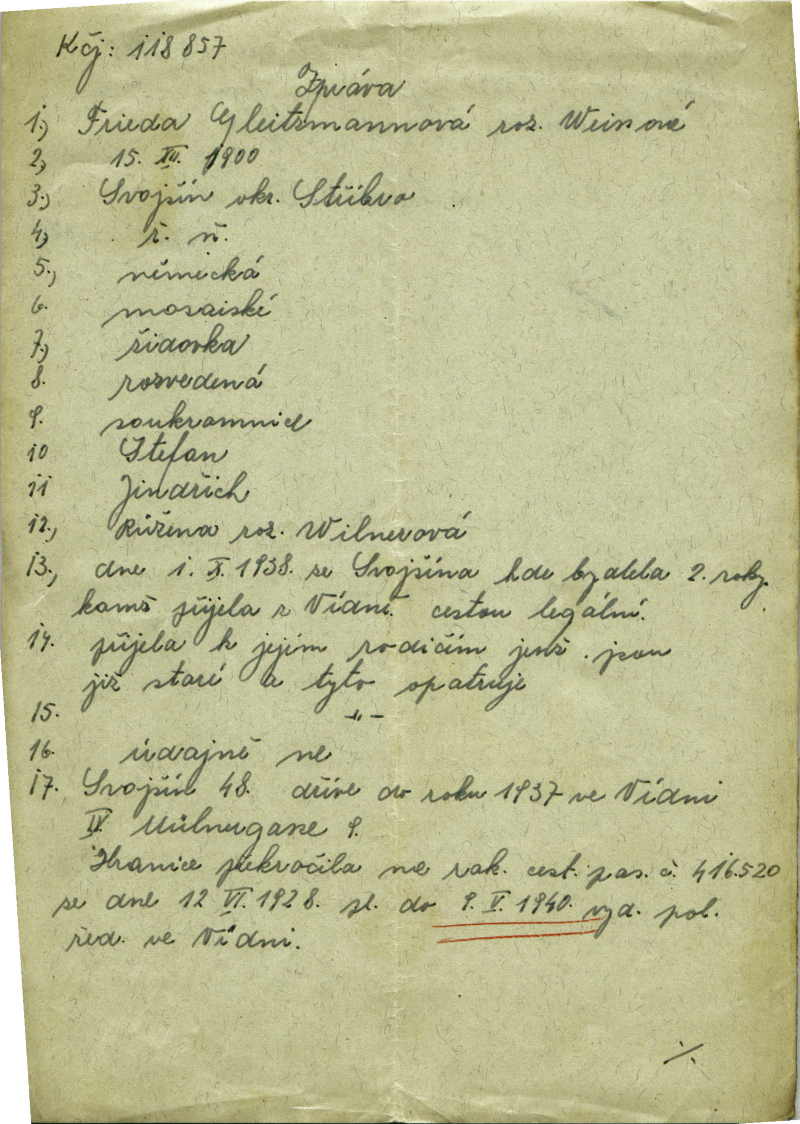 K čj: 118 857
Zpráva
1., Frieda Gleitzmannová roz. Weisová
2, 15. XII. 1900
3., Svojšín okr. Stříbro
4, ř. ň.
5., německá
6. mosaiské
7., židovka
8. rozvedená
9. soukromnice
10 Štefan
11 Jindřich
12., Růžena roz. Wilnerová
13., dne 1. X. 1938. ze Svojšína kde bydlela 2. roky.
kamž přijela z Vídně. cestou legální.
14. přijela k jejím rodičům jenž jsou
již staré a tyto opatruje
15. -„-
16. údajně ne
17. Svojšín 48. dříve do roku 1937 ve Vídni
IV Mülnergasse 9.
Hranice překročila na rak. cest. pas. č. 416.520
ze dne 12 VI. 1928. pl. do 9. V. 1940. vyd. pol.
řed. ve Vídni.
./.